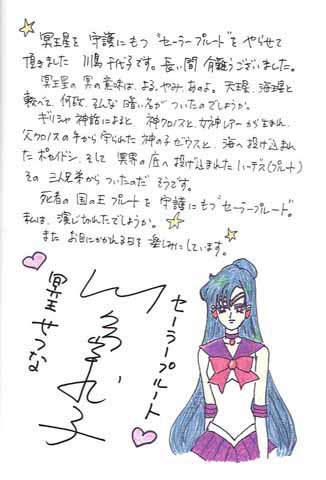 冥王星を 守護にもつ "セーラープルート" を やらせて
頂きました 川島千代子です。長い間 有難うございました。
冥王星の 冥の意味は、よる、やみ、あのよ。天王星、海王星と
較べて、何故、そんな 暗い名が ついたのでしょうか。
ギリシャ神話によると 神クロノスと、女神レアーから生まれ、
父クロノスの手から 守られた 神の子 ゼウスと、海へ投げ込まれ
た ポセイドン、そして 冥界の底へ 投げ込まれた ハーデス(プルート)
その 三人兄弟から ついたのだ そうです。
死者の 国の王 プルートを 守護にもつ "セーラープルート"。
私は、演じ切れたでしょうか。
また お目にかかれる日を 楽しみにしています。
冥王せつな
川島千代子
セーラープルート